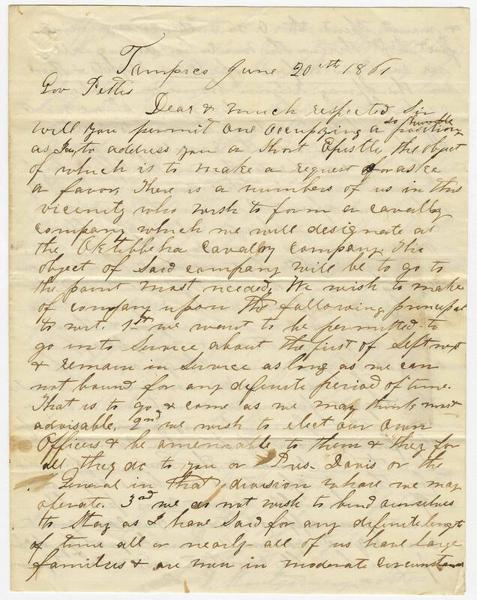 Tampico June 20th 1861
Gov Pettus
Dear & much respected Sir
will you permit one occupying a so humble position
as I am, to address you a Short Epistle the object
of which is to make a request & or aske
a favor, There is a numbers of us in this
vicinity who wish to form a cavalry
company which we will designate as
the Oktibbeha Cavalry Company. The
object of said company will be to go to
the point most needed, We wish to make
up company upon the following principal
to wit. 1st we want to be permitted to
go into Service about the first of Sept next
& remain in Service as long as we can
not bound for any definite period of time.
That is to go & come as we may think most
advisable, 2nd we wish to elect our own
Officers & be amenable to them & they for
all they do to you or Pres. Davis or the
General in that division whare we may
operate. 3rd we do not wish to bind ourselves
to Stay as I have Said for any definite length
of time all or nearly all of us have large
families & are men in moderate circumstances